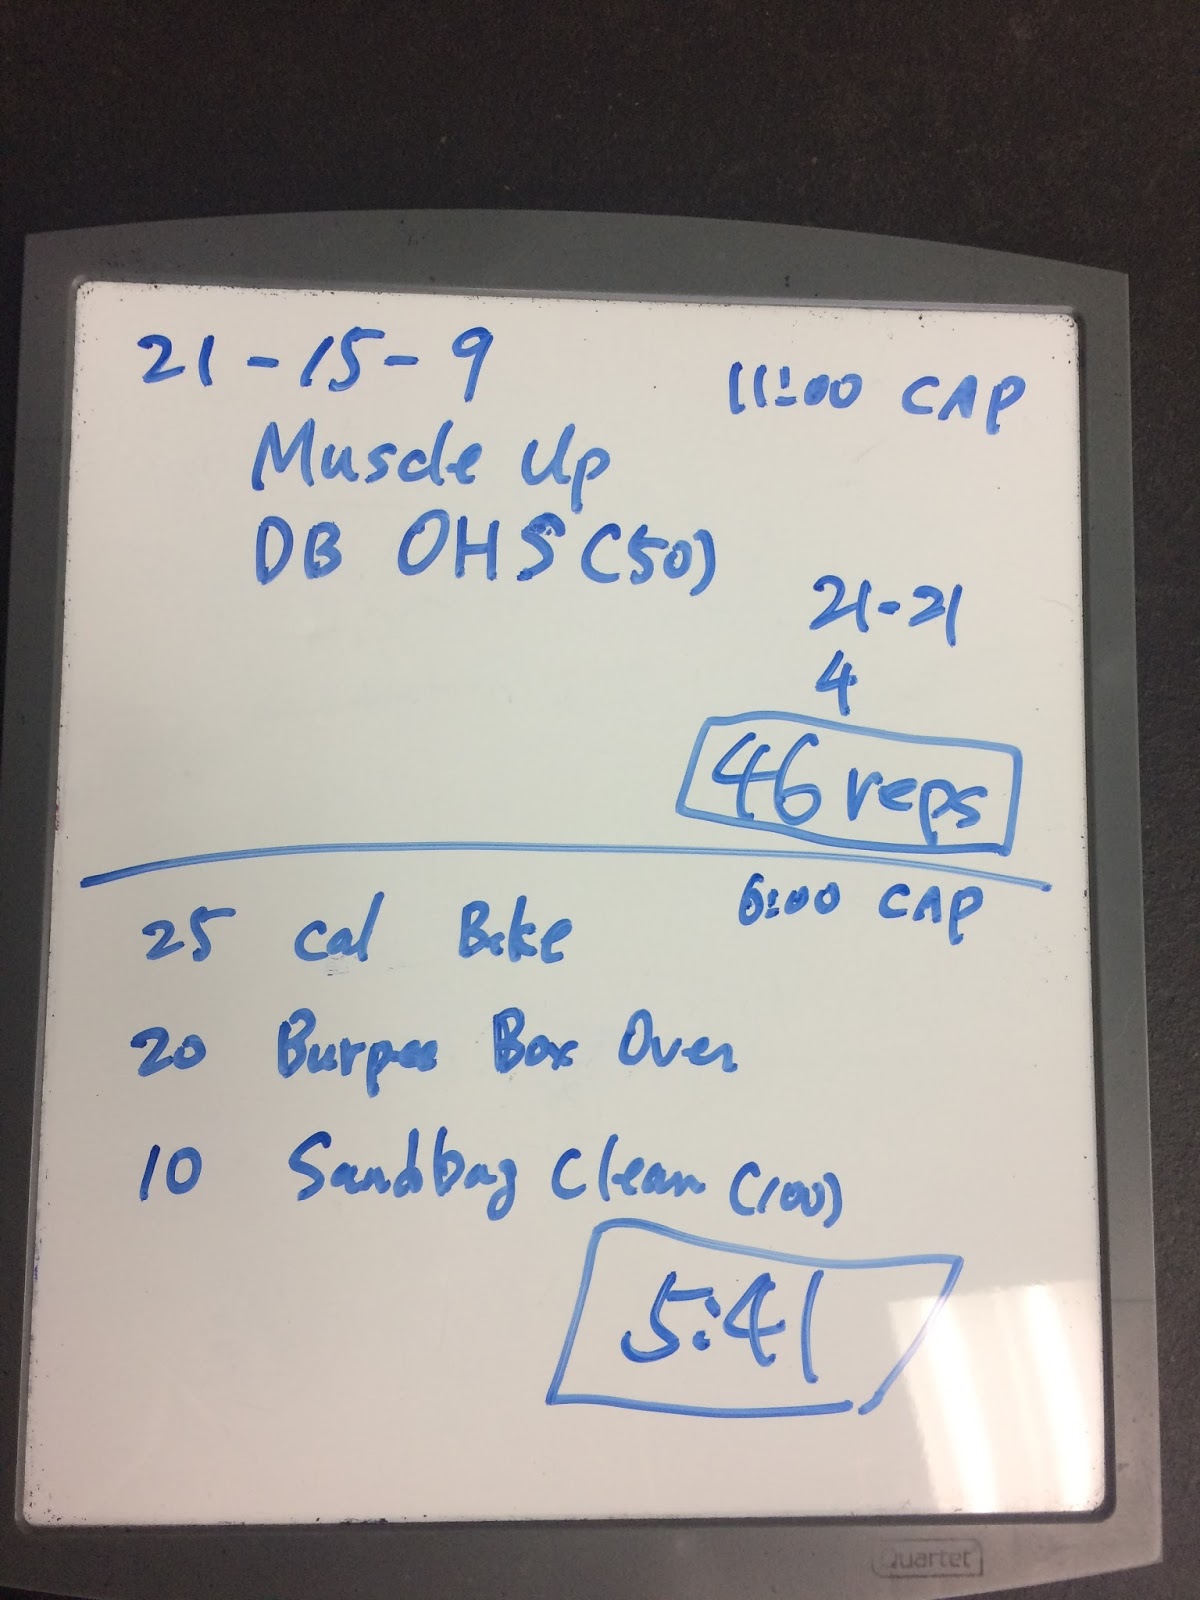 21-15-9
11:00 CAP
Muscle Up
DB OHS (50)
21-21
4
46 reps
6:00 CAP
25 Cal Bike
20 Burpee Box Over
10 Sandbag Clean (100)
5:41
Quartet